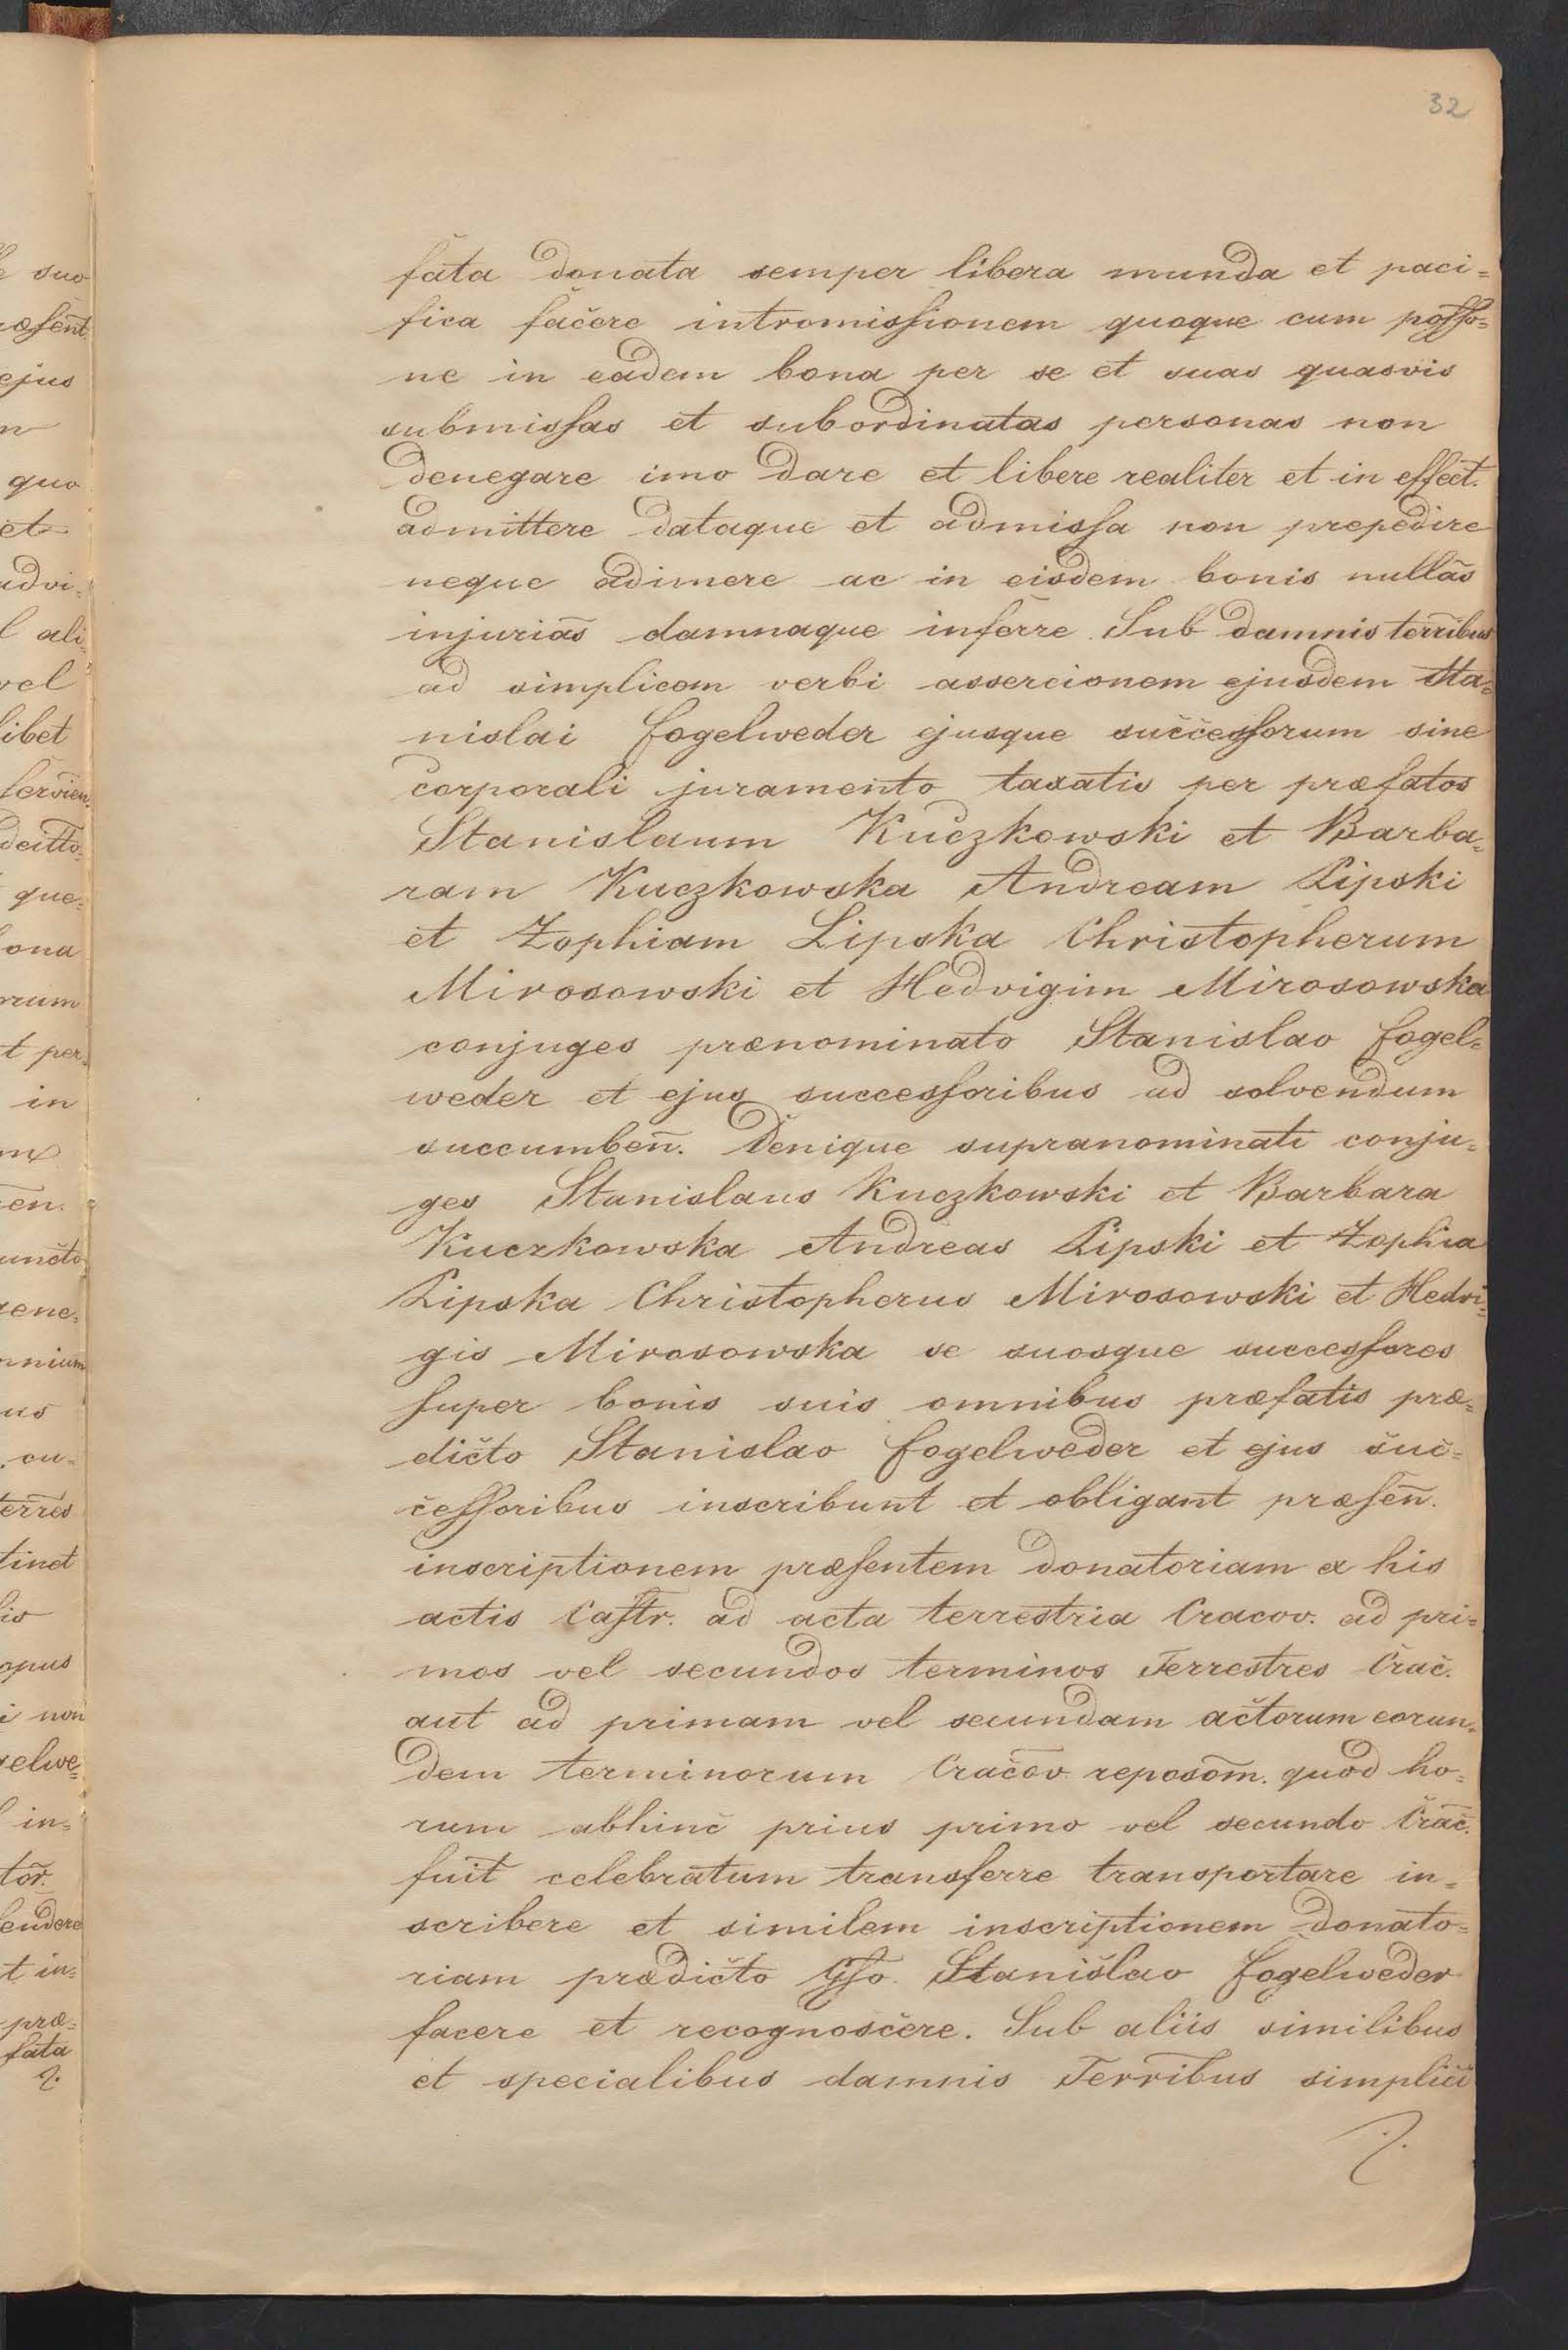 32
fata donata semper libera munda et paci=
fica facere intromissionem quoque cum posso=
ne in eadem bona per se et suas quasvis
submissas et subordinatas personas non
denegare imo dare et libere realiter et in effect.
admittere dataque et admissa non prepedire
neque adimere ac in eisdem bonis nullas
injurias damnaque inferre. Sub damnis terribus
ad simplicem verbi assercionem ejusdem Sta=
nislai Fogelweder ejusque successorum sine
corporali juramento taxatis per præfatos
Stanislaum Kuczkowski et Barba=
ram Kuczkowska Andream Lipski
et Zophiam Lipska Christopherum
Mirosowski et Hedvigim Mirosowska
conjuges prænominato Stanislao Fogel=
weder et ejus successoribus ad solvendum
succumben̄. Denique supranominati conju=
ges Stanislaus Kuczkowski et Barbara
Kuczkowska Andreas Lipski et Zophia
Lipska Christopherus Mirosowski et Hedvi=
gis Mirosowska se suosque successores
super bonis suis omnibus præfatis præ=
dicto Stanislao Fogelweder et ejus suc=
cessoribus inscribunt et obligant præsen̄.
inscriptionem præsentem donatoriam ex his
actis Castr. ad acta terrestria Cracov. ad pri=
mos vel secundos terminos Terrestres Crac.
aut ad primam vel secundam actorum eorun=
dem terminorum Cracov. reposom̄. quod ho=
rum abhinc prius primo vel secundo Crac.
fuit celebratum transferre transportare in=
scribere et similem inscriptionem donato=
riam prædicto Gso. Stanislao Fogelweder
facere et recognoscere. Sub aliis similibus
et specialibus damnis Terribus simplici
suo
præsent.
ejus
quo
et
advi=
ali=
vel
libet
servien.
ona
rum
t per=
in
en.
uncto
nium
us
cu=
terres
tinet
opus
i non
gelwe=
in=
tor.
t in=
præ=
fata